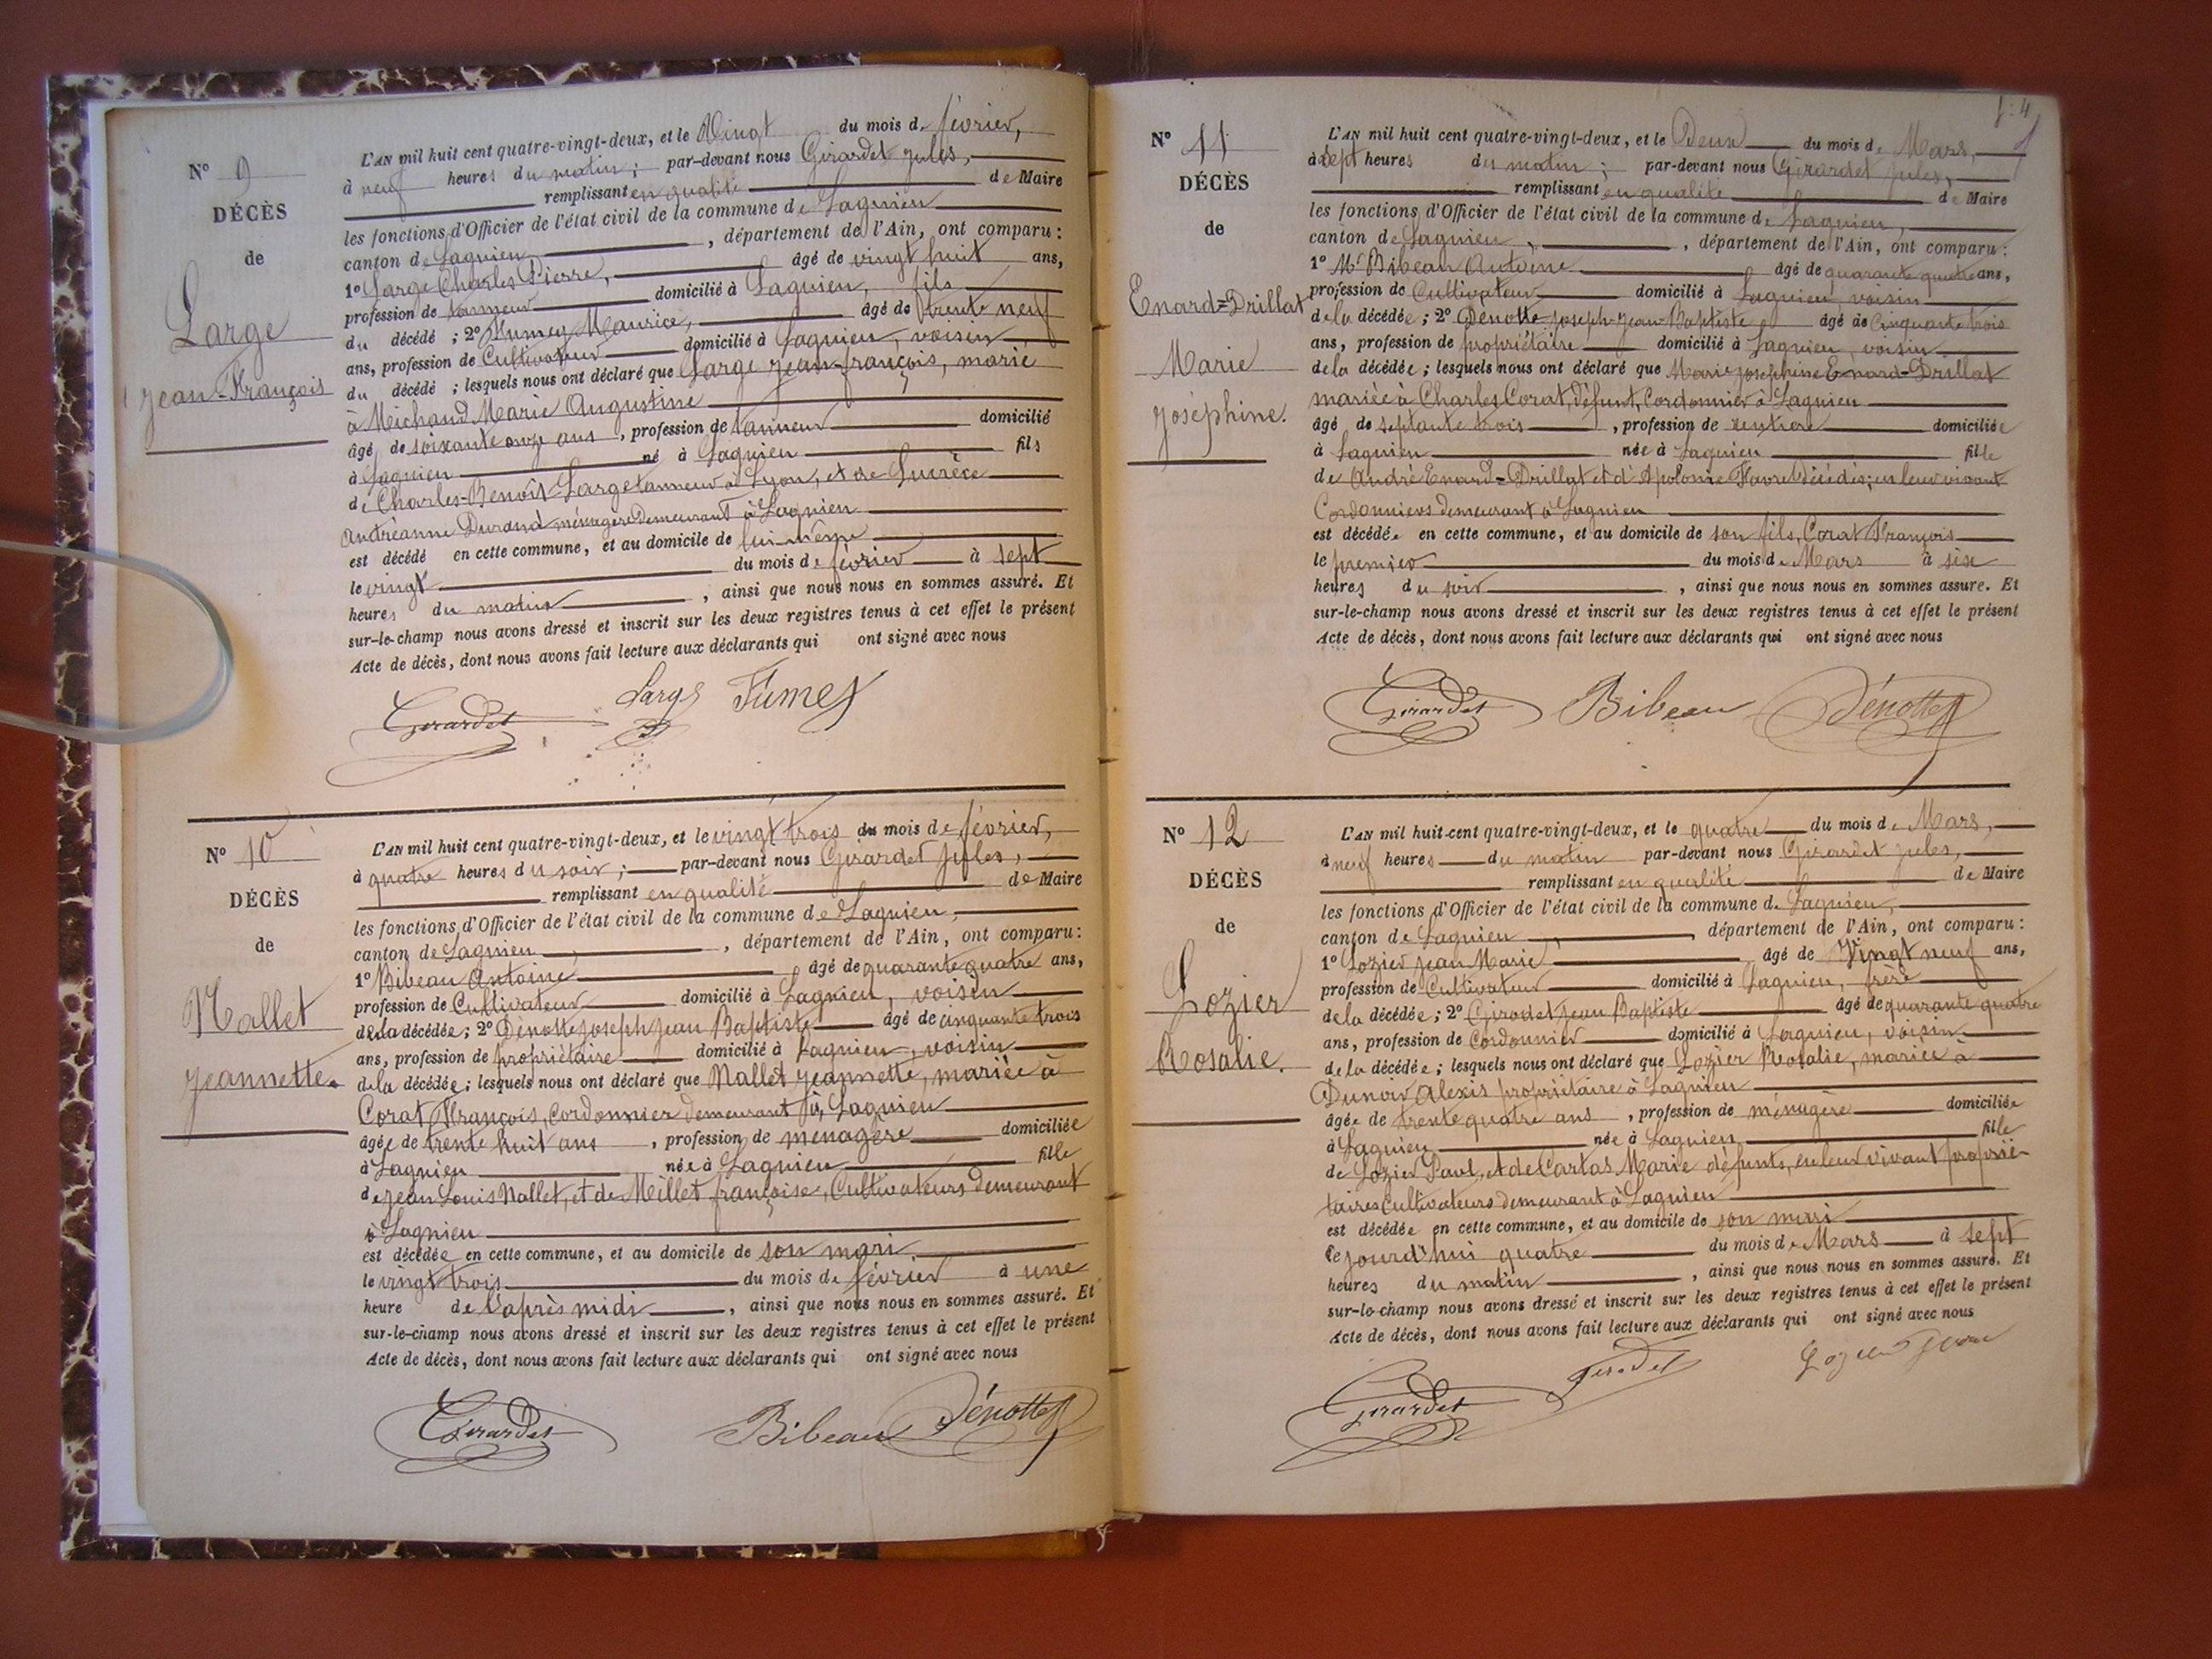 Nº 9
DÉCÈS
de
Large
Jean-François
L'AN mil huit cent quatre-vingt-deux, et le Vingt du mois de février,
à neuf heures du matin ; par-devant nous Girardet Jules,
remplissant en qualité de Maire
les fonctions d'Officier de l'état civil de la commune de Lagnieu
canton de Lagnieu, département de l'Ain, ont comparu :
1º Large Charles Pierre, âgé de vingt huit ans,
profession de tanneur domicilié à Lagnieu, fils
du décédé ; 2º Fumey Maurice, âgé de trente neuf
ans, profession de Cultivateur domicilié à Lagnieu, voisin
du décédé ; lesquels nous ont déclaré que Large Jean-François, marié
à Michaud Marie Augustine
âgé de soixante onze ans, profession de tanneur domicilié
à Lagnieu né à Lagnieu fils
de Charles-Benoît Large tanneur à Lyon, et de Lucrèce
Andréanne Durand ménagère demeurant à Lagnieu
est décédé en cette commune, et au domicile de lui-même
le vingt du mois de février à sept
heures du matin, ainsi que nous nous en sommes assuré. Et
sur-le-champ nous avons dressé et inscrit sur les deux registres tenus à cet effet le présent
Acte de décès, dont nous avons fait lecture aux déclarants qui ont signé avec nous
Girardet Large Fumey
Nº 10
DÉCÈS
de
Nallet
Jeannette.
L'AN mil huit cent quatre-vingt-deux, et le vingt trois du mois de février,
à quatre heures du soir ; par-devant nous Girardet Jules,
remplissant en qualité de Maire
les fonctions d'Officier de l'état civil de la commune de Lagnieu,
canton de Lagnieu, département de l'Ain, ont comparu :
1º Bibeau Antoine âgé de quarante quatre ans,
profession de Cultivateur domicilié à Lagnieu, voisin
de la décédée ; 2º Dénotte Joseph Jean Baptiste âgé de cinquante trois
ans, profession de propriétaire domicilié à Lagnieu, voisin
de la décédée ; lesquels nous ont déclaré que Nallet Jeannette, mariée à
Corat François, Cordonnier demeurant à Lagnieu
âgée de trente huit ans, profession de ménagère domiciliée
à Lagnieu née à Lagnieu fille
de Jean Louis Nallet, et de Millet françoise, Cultivateurs demeurant
à Lagnieu
est décédée en cette commune, et au domicile de son mari
le vingt trois du mois de février à une
heure de l'après midi, ainsi que nous nous en sommes assuré. Et
sur-le-champ nous avons dressé et inscrit sur les deux registres tenus à cet effet le présent
Acte de décès, dont nous avons fait lecture aux déclarants qui ont signé avec nous
Girardet Bibeau Dénotte
f. 4
Nº 11
DÉCÈS
de
Enard=Drillat
Marie
Joséphine.
L'AN mil huit cent quatre-vingt-deux, et le Deux du mois de Mars,
à sept heures du matin ; par-devant nous Girardet Jules,
remplissant en qualité de Maire
les fonctions d'Officier de l'état civil de la commune de Lagnieu,
canton de Lagnieu, département de l'Ain, ont comparu :
1º Mr Bibeau Antoine âgé de quarante quatre ans,
profession de Cultivateur domicilié à Lagnieu, voisin
de la décédée ; 2º Dénotte Joseph Jean-Baptiste âgé de Cinquante trois
ans, profession de propriétaire domicilié à Lagnieu, voisin
de la décédée ; lesquels nous ont déclaré que Marie Joséphine Enard=Drillat
mariée à Charles Corat, défunt, Cordonnier à Lagnieu
âgé de septante trois, profession de rentière domiciliée
à Lagnieu née à Lagnieu fille
de André Enard=Drillat et d'Apolonie Favre décédés ; en leur vivant
Cordonniers demeurant à Lagnieu
est décédée en cette commune, et au domicile de son fils, Corat François
le premier du mois de Mars à six
heures du soir, ainsi que nous nous en sommes assuré. Et
sur-le-champ nous avons dressé et inscrit sur les deux registres tenus à cet effet le présent
Acte de décès, dont nous avons fait lecture aux déclarants qui ont signé avec nous
Girardet Bibeau Dénotte
Nº 12
DÉCÈS
de
Lozier
Rosalie.
L'AN mil huit-cent quatre-vingt-deux, et le quatre du mois de Mars,
à neuf heures du matin par-devant nous Girardet Jules,
remplissant en qualité de Maire
les fonctions d'Officier de l'état civil de la commune de Lagnieu,
canton de Lagnieu, département de l'Ain, ont comparu :
1º Lozier Jean Marie âgé de Vingt neuf ans,
profession de Cultivateur domicilié à Lagnieu, frère
de la décédée ; 2º Girodet Jean Baptiste âgé de quarante quatre
ans, profession de Cordonnier domicilié à Lagnieu, voisin
de la décédée ; lesquels nous ont déclaré que Lozier Rosalie, mariée à
Dunoir Alexis propriétaire à Lagnieu
âgée de trente quatre ans, profession de ménagère domiciliée
à Lagnieu née à Lagnieu fille
de Lozier Paul, et de Cartas Marie défunts, en leur vivant proprié-
taires Cultivateurs demeurant à Lagnieu
est décédée en cette commune, et au domicile de son mari
le jourd'hui quatre du mois de Mars à sept
heures du matin, ainsi que nous nous en sommes assuré. Et
sur-le-champ nous avons dressé et inscrit sur les deux registres tenus à cet effet le présent
Acte de décès, dont nous avons fait lecture aux déclarants qui ont signé avec nous
Girardet Girodet Lozier Jean